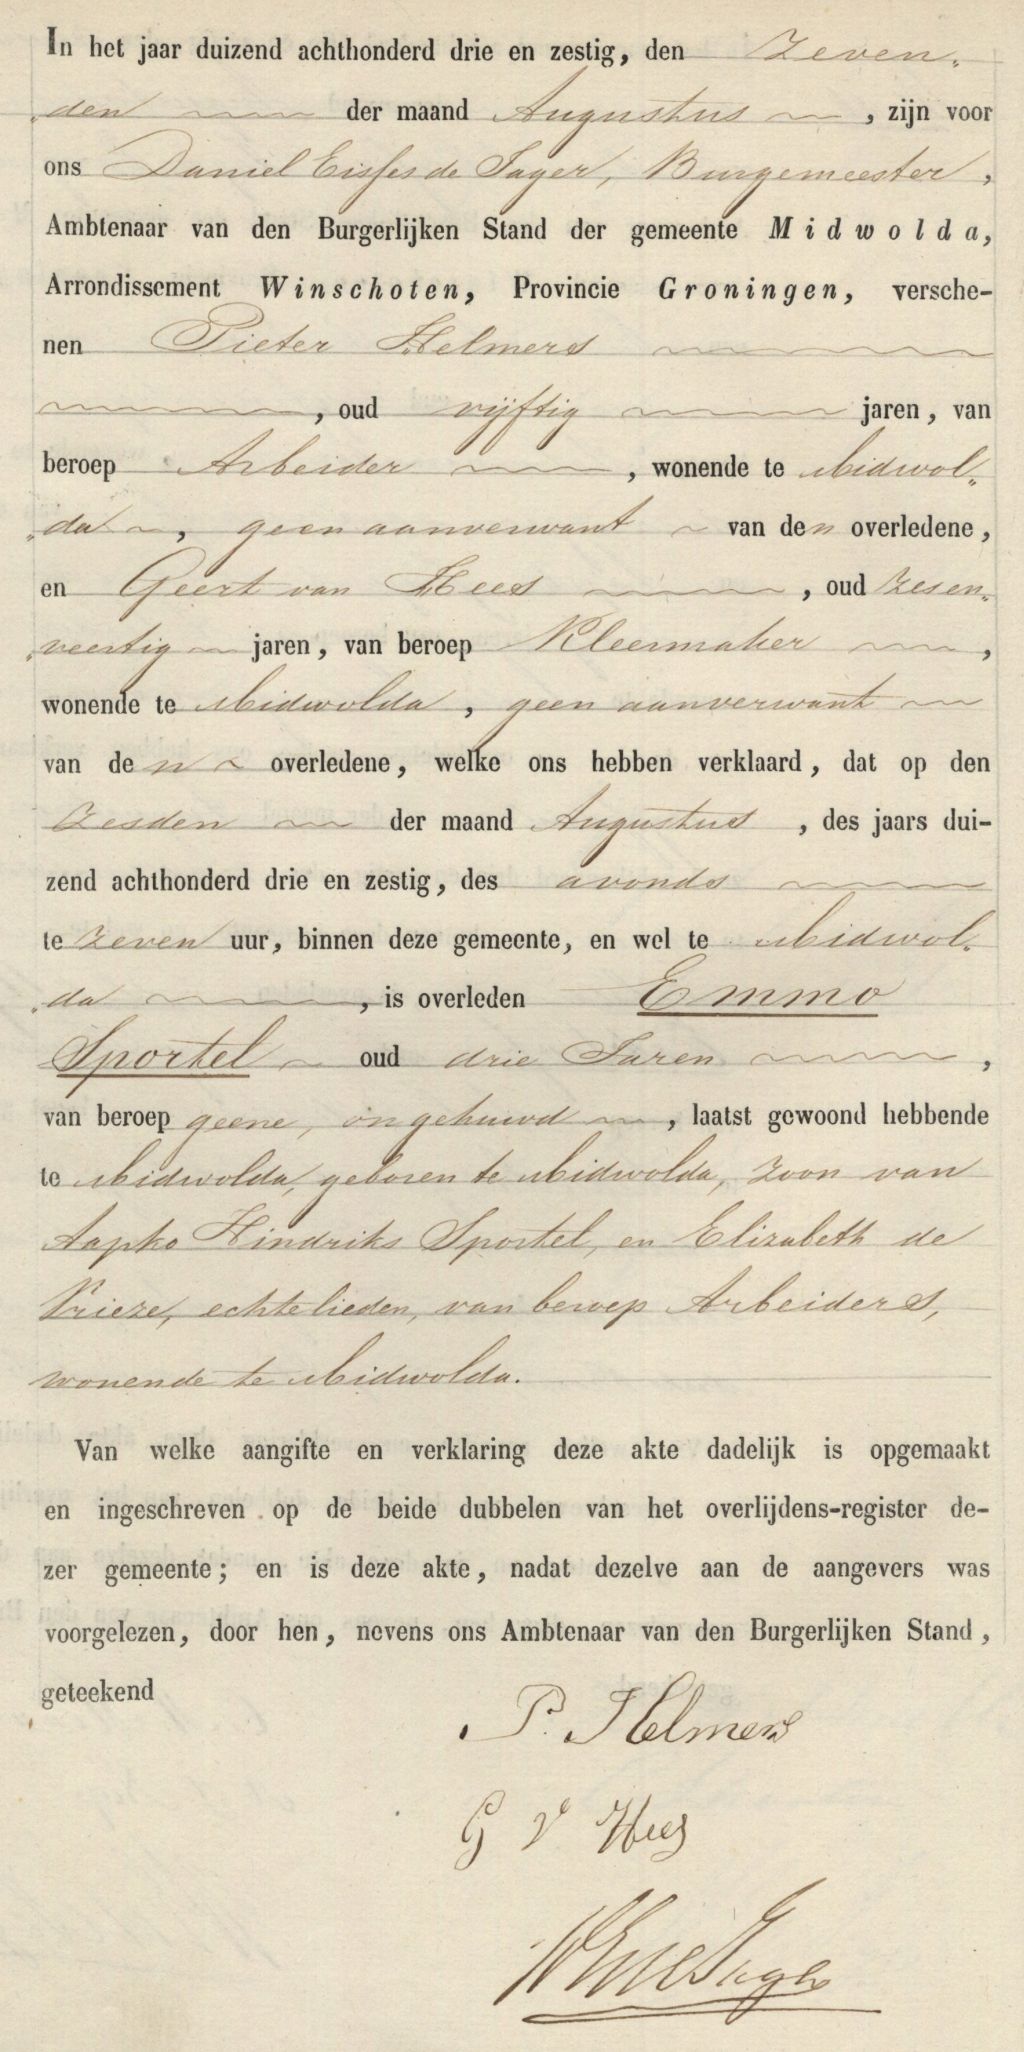 In het jaar duizend achthonderd drie en zestig, den zeven„
„den der maand Augustus, zijn voor
ons Daniel Eisses de Jager, Burgemeester,
Ambtenaar van den Burgerlijken Stand der gemeente Midwolda,
Arrondissement Winschoten, Provincie Groningen, versche-
nen Pieter Helmers
, oud vijftig jaren, van
beroep Arbeider, wonende te Midwol„
„da, geen aanverwant van den overledene,
en Geert van Hees, oud zesen„
„veertig jaren, van beroep Kleermaker,
wonende te Midwolda, geen aanverwant
van den overledene, welke ons hebben verklaard, dat op den
zesden der maand Augustus, des jaars dui-
zend achthonderd drie en zestig, des avonds
te zeven uur, binnen deze gemeente, en wel te Midwol„
„da, is overleden Emmo
Sportel oud drie Jaren,
van beroep geene, ongehuwd, laatst gewoond hebbende
te Midwolda, geboren te Midwolda, zoon van
Aapko Hindriks Sportel, en Elizabeth de
Vrieze, echtelieden, van beroep Arbeiders,
wonende te Midwolda.
Van welke aangifte en verklaring deze akte dadelijk is opgemaakt
en ingeschreven op de beide dubbelen van het overlijdens-register de-
zer gemeente; en is deze akte, nadat dezelve aan de aangevers was
voorgelezen, door hen, nevens ons Ambtenaar van den Burgerlijken Stand,
geteekend
P. Helmers
G v Hees
DEdeJager